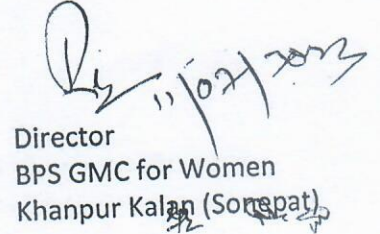 11/07/2023
Director
BPS GMC for Women
Khanpur Kalan (Sonepat)